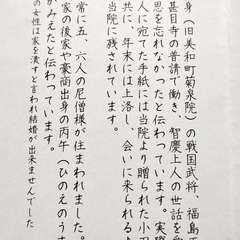 身（旧美和町菊泉院）の戦国武将、福島正
甚目寺の普請で働き、智慶上人の世話を
恩を忘れなかったと伝わっています。実際
人に宛てた手紙には当院より贈られた小刀
共に、年末には上洛し、会いに来られる
当院に残されています。
常に五、六人の尼僧様が住まわれました。
家の後家や豪商出身の丙午（ひのえのう
がみえたと伝わっています。
の女性は家を潰すと言われ結婚が出来ませんでした